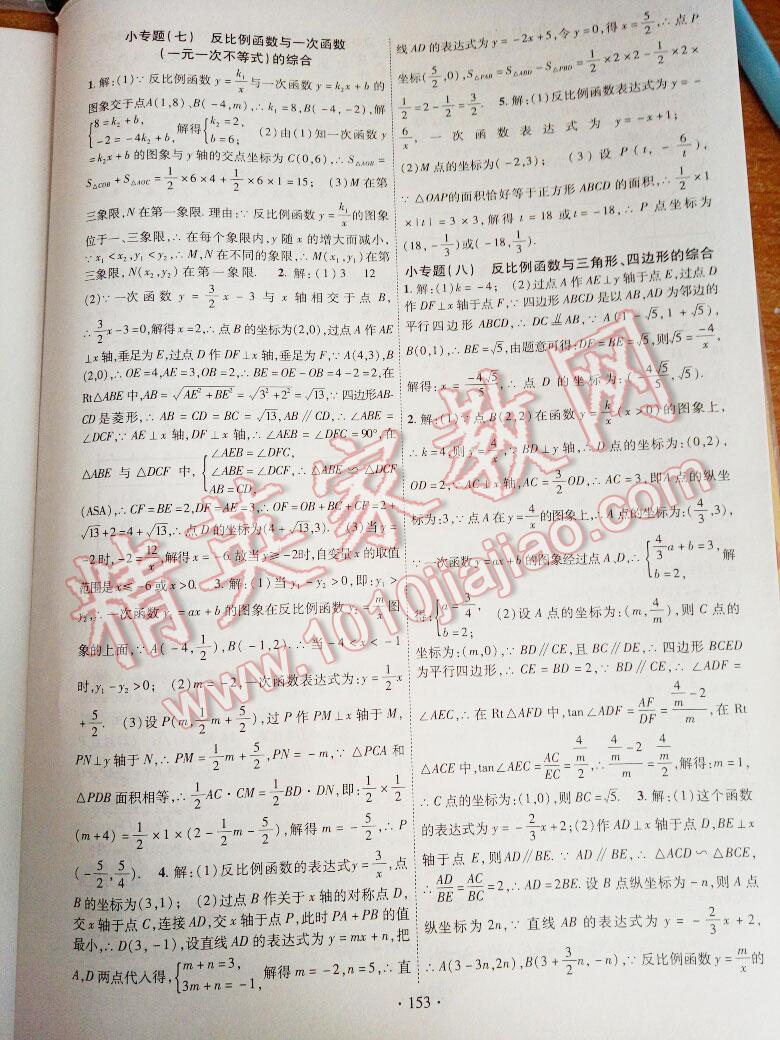 小专题(七)　反比例函数与一次函数
(一元一次不等式)的综合
1. 解:(1)∵反比例函数 y=k₁/x 与一次函数 y=k₂x+b 的
图象交于点A(1,8)、B(-4,m),∴k₁=8,B(-4,-2),解
{8=k₂+b, -2=-4k₂+b, 解得{k₂=2, b=6; (2)由(1)知一次函数 y
=k₂x+b 的图象与 y 轴的交点坐标为 C(0,6),∴S△AOB=
S△COB+S△AOC=1/2×6×4+1/2×6×1=15; (3)M 在第
三象限,N 在第一象限. 理由:∵反比例函数 y=k₁/x 的图象
位于一、三象限,∴在每个象限内,y 随 x 的增大而减小,
∵x₁<x₂,y₁<y₂,∴M,N 在不同的象限,∴M(x₁,y₁)在第
三象限,N(x₂,y₂)在第一象限. 2. 解:(1)3　12
(2)∵一次函数 y=3/2x-3 与 x 轴相交于点 B,
∴3/2x-3=0,解得x=2,∴点 B 的坐标为(2,0),过点 A 作 AE
⊥x 轴,垂足为 E,过点 D 作 DF⊥x 轴,垂足为 F,∵A(4,3),B
(2,0),∴OE=4,AE=3,OB=2,∴BE=OE-OB=4-2=2,在
Rt△ABE 中,AB=√(AE²+BE²)=√(3²+2²)=√13,∵四边形AB-
CD 是菱形,∴AB=CD=BC=√13,AB∥CD,∴∠ABE=
∠DCF,∵AE⊥x 轴,DF⊥x 轴,∴∠AEB=∠DFC=90°,在
△ABE 与△DCF 中,{∠AEB=∠DFC, ∠ABE=∠DCF, AB=CD, ∴△ABE∽△DCF
(ASA),∴CF=BE=2,DF=AE=3,∴OF=OB+BC+CF=2+
√13+2=4+√13,∴点 D 的坐标为(4+√13,3). (3)当 y=
-2时,-2=12/x,解得 x=-6.故当 y≥-2时,自变量 x 的取值
范围是x≤-6或x>0. 3. 解:(1)当 y₁-y₂>0,即:y₁>
y₂,∴一次函数 y₁=ax+b 的图象在反比例函数 y₂=m/x 图
象的上面,∵A(-4,1/2),B(-1,2)∴当-4<x<-1
时,y₁-y₂>0; (2)m=-2,一次函数表达式为:y=1/2x
+5/2. (3)设 P(m,1/2m+5/2),过 P 作 PM⊥x 轴于 M,
PN⊥y 轴于 N,∴PM=1/2m+5/2,PN=-m,∵△PCA 和
△PDB 面积相等,∴1/2AC·CM=1/2BD·DN,即:1/2×1/2
(m+4)=1/2×1×(2-1/2m-5/2),解得 m=-5/2,∴P
(-5/2,5/4). 4. 解:(1)反比例函数的表达式y=3/x,点
B 的坐标为(3,1); (2)过点 B 作关于 x 轴的对称点 D,
交 x 轴于点 C,连接 AD,交 x 轴于点 P,此时 PA+PB 的值
最小,∴D(3,-1),设直线 AD 的表达式为 y=mx+n,把
A,D 两点代入得,{m+n=3, 3m+n=-1, 解得 m=-2,n=5,∴直
线 AD 的表达式为 y=-2x+5,令 y=0,得 x=5/2,∴点 P
坐标(5/2,0),S△PAB=S△ABD-S△PBD=1/2×2×2-1/2×2×
1/2=2-1/2=3/2. 5. 解:(1)反比例函数表达式为 y=-
6/x,一次函数表达式为 y=-x+1;
(2)M 点的坐标为(-2,3); (3)设 P(t,-6/t),
∵△OAP的面积恰好等于正方形 ABCD 的面积,∴1/2×1
×|t|=3×3,解得 t=18 或t=-18,∴P 点坐标为
(18,-1/3)或(-18,1/3).
小专题(八)　反比例函数与三角形、四边形的综合
1. 解:(1)k=-4; (2)过点 A 作 AE⊥y 轴于点 E,过点 D
作 DF⊥x 轴于点 F,∵四边形 ABCD 是以 AB,AD 为邻边的
平行四边形 ABCD,∴DC⫽AB,∵A(1-√5,1+√5),
B(0,1),∴BE=√5,由题意可得:DF=BE=√5,则√5=-4/x,
解得:x=-4√5/5,∴点 D 的坐标为:(-4√5/5,√5).
2. 解:(1)∵点 B(2,2)在函数 y=k/x(x>0)的图象上,
∴k=4,则 y=4/x,∵BD⊥y 轴,∴D 点的坐标为:(0,2),
OD=2,∵AC⊥x 轴,AC=3/2OD,∴AC=3,即A 点的纵坐
标为:3,∵点 A 在 y=4/x 的图象上,∴A 点的坐标为:(4/3,3),
∵一次函数 y=ax+b 的图象经过点 A、D,∴{4/3a+b=3, b=2, 解
得:{a=3/4, b=2; (2)设 A 点的坐标为:(m,4/m),则 C 点的
坐标为:(m,0),∵BD∥CE,且 BC∥DE,∴四边形 BCED
为平行四边形,∴CE=BD=2,∵BD∥CE,∴∠ADF=
∠AEC,∴在 Rt△AFD 中,tan∠ADF=AF/DF=(4/m-2)/m,在 Rt
△ACE 中,tan∠AEC=AC/EC=(4/m)/2,∴(4/m-2)/m=(4/m)/2,解得:m=1,
∴C 点的坐标为:(1,0),则 BC=√5. 3. 解:(1)这个函数
的表达式为 y=-2/3x+2;(2)作 AD⊥x 轴于点 D,BE⊥x
轴于点 E,则 AD∥BE.∵AD∥BE,∴△ACD∽△BCE,
∴AD/BE=AC/BC=2,∴AD=2BE.设 B 点纵坐标为-n,则 A 点
纵坐标为 2n,∵直线 AB 的表达式为 y=-2/3x+2,
∴A(3-3n,2n),B(3+3/2n,-n),∵反比例函数 y=m/x 的
·153·
精英家教网
www.1010jiajiao.com